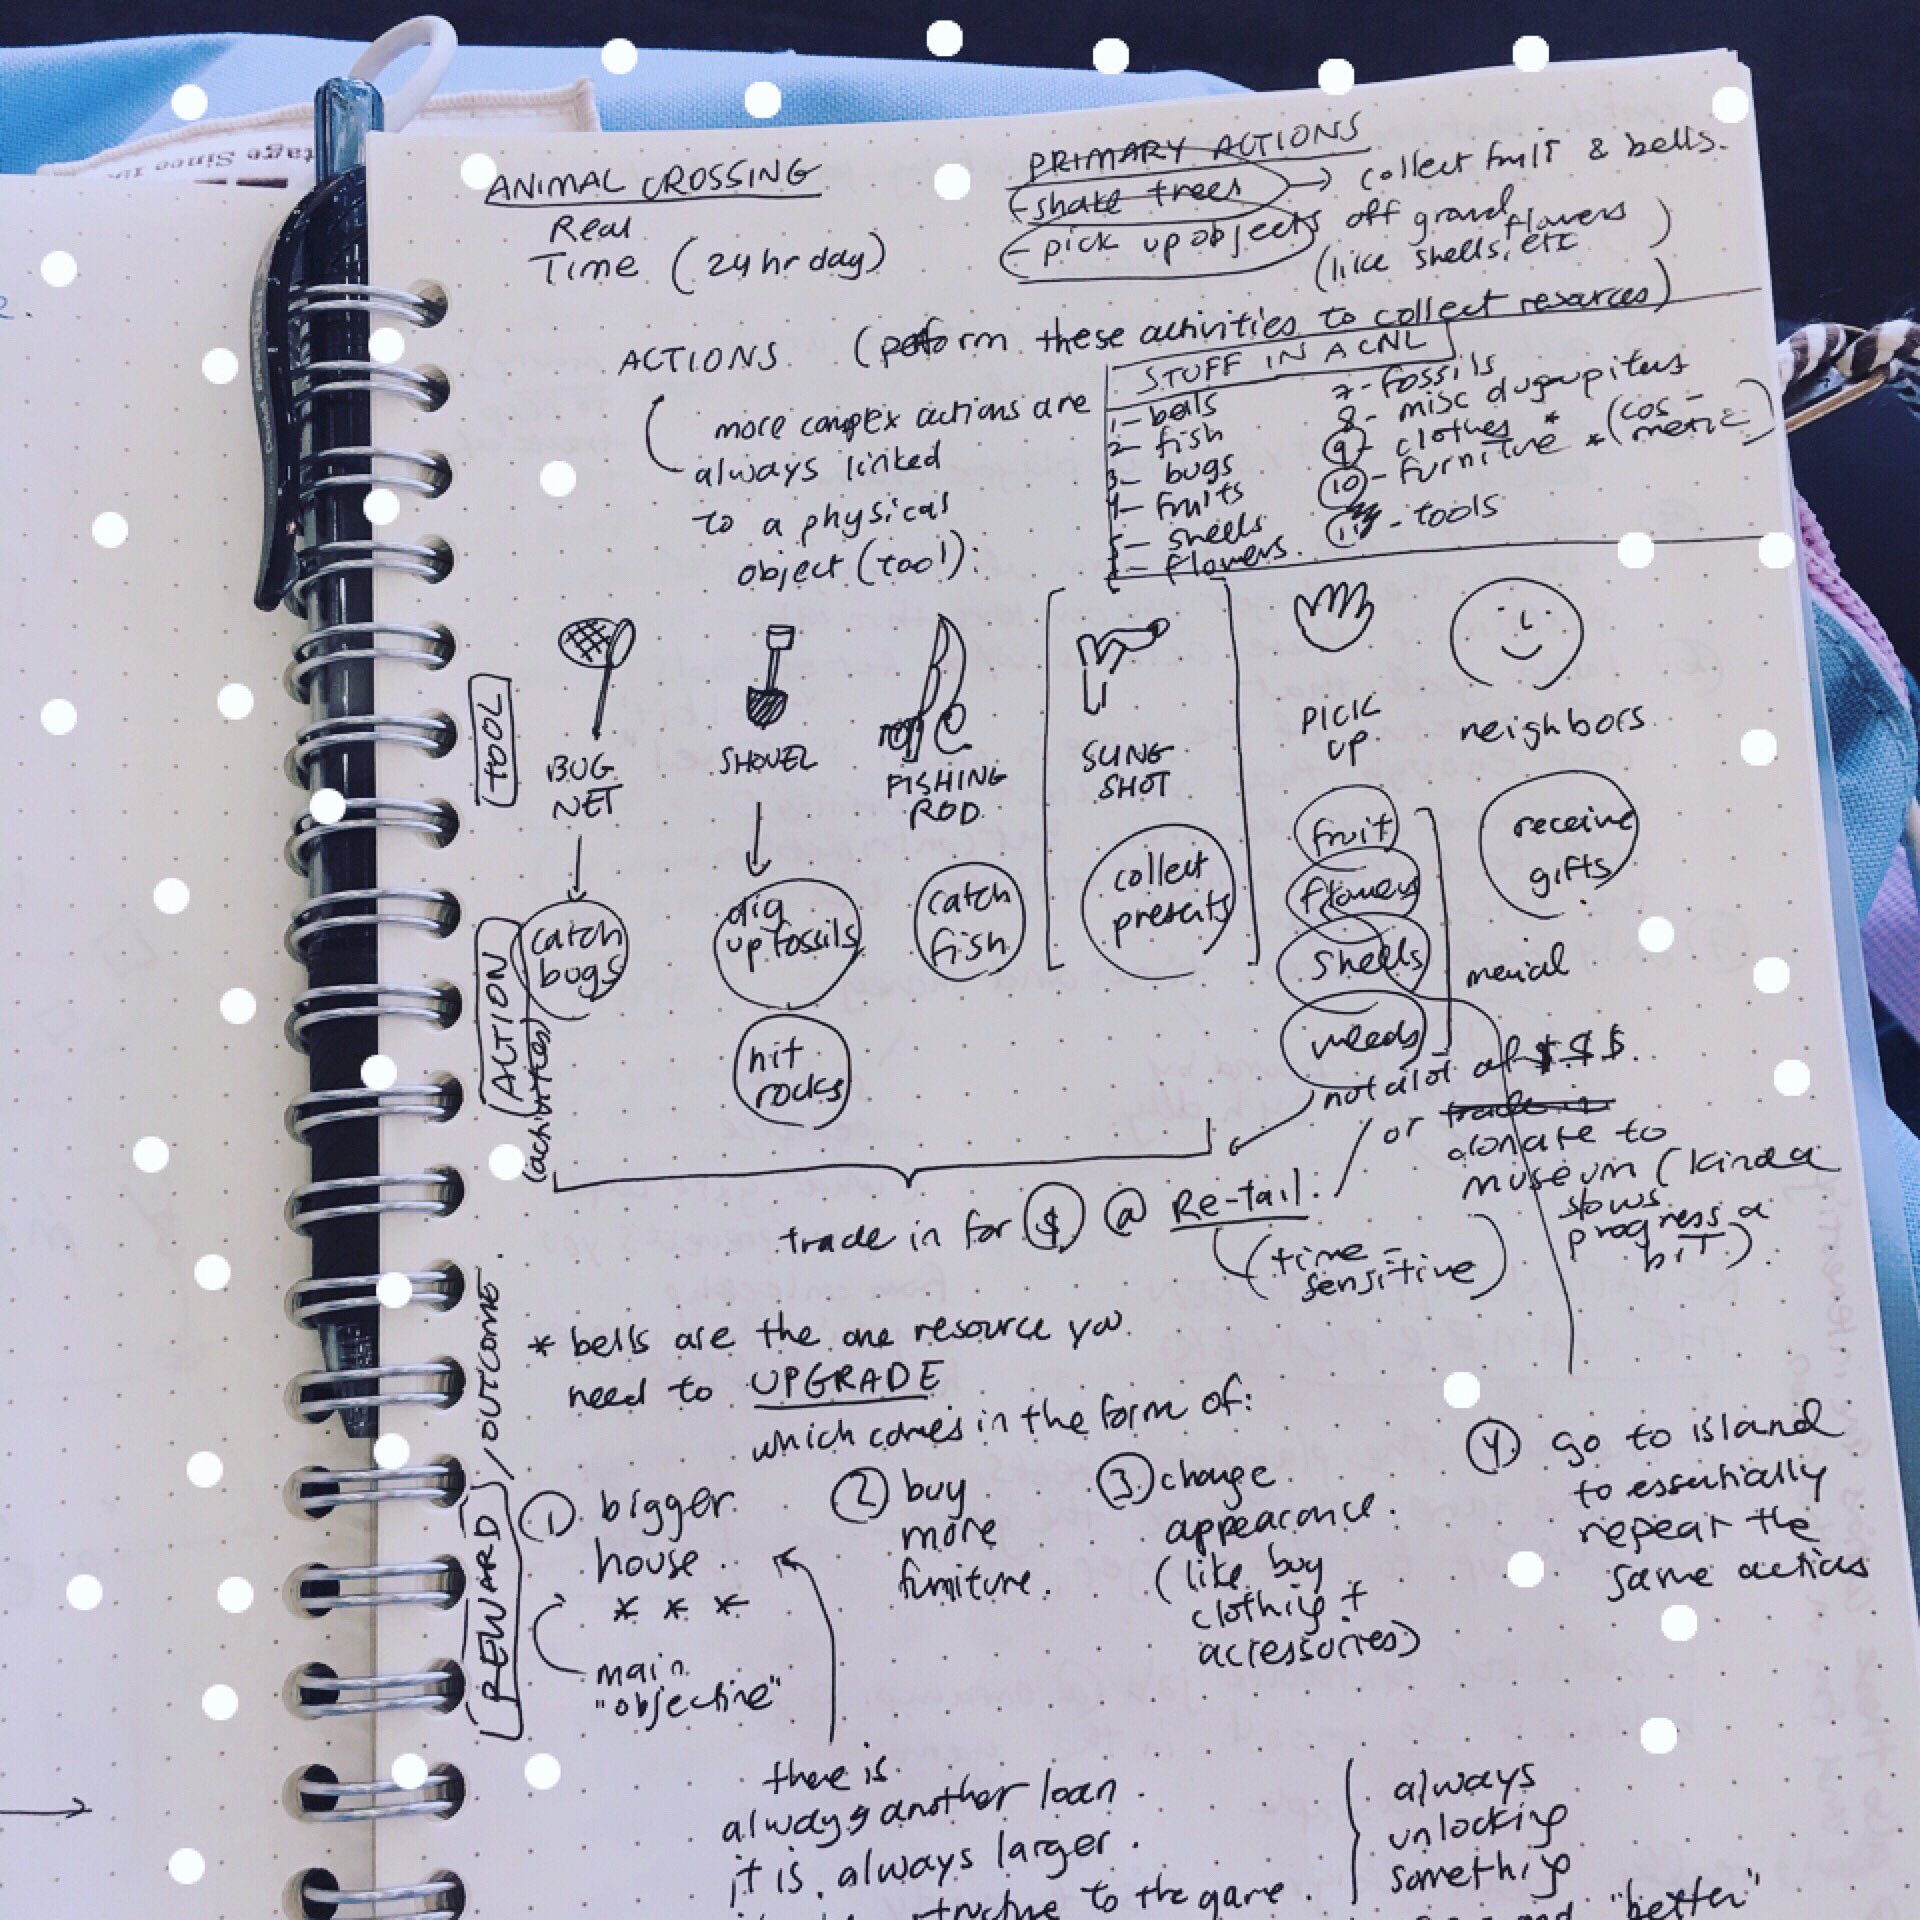 ANIMAL CROSSING
Real
Time (24 hr day)
PRIMARY ACTIONS
- shake trees → collect fruit & bells.
- pick up objects off ground
(like shells, flowers etc)
ACTIONS (perform these activities to collect resources)
more complex actions are
always linked
to a physical
object (tool):
STUFF IN ACNL
1- bells
2- fish
3- bugs
4- fruits
5- shells
6- flowers.
7- fossils
8- misc
9- clothes *
10- furniture * (cosmetic)
11- tools
TOOL
BUG
NET
SHOVEL
FISHING
ROD
SLING
SHOT
PICK
UP
neighbors
ACTION
(activities)
catch
bugs
dig
up fossils
hit
rocks
catch
fish
collect
presents
fruit
flowers
shells
weeds
menial
receive
gifts
not alot of $ $ $.
trade in for $ @ Re-tail.
(time-
sensitive)
/ or trade in
donate to
museum (kinda
slows
progress a
bit)
REWARD / OUTCOME
* bells are the one resource you
need to UPGRADE
which comes in the form of:
1. bigger
house.
* * *
main
"objective"
2 buy
more
furniture.
3 change
appearance.
(like buy
clothing +
accessories)
4. go to island
to essentially
repeat the
same actions
there is
always another loan.
it is always larger.
structure to the game.
always
unlocking
something
"better"